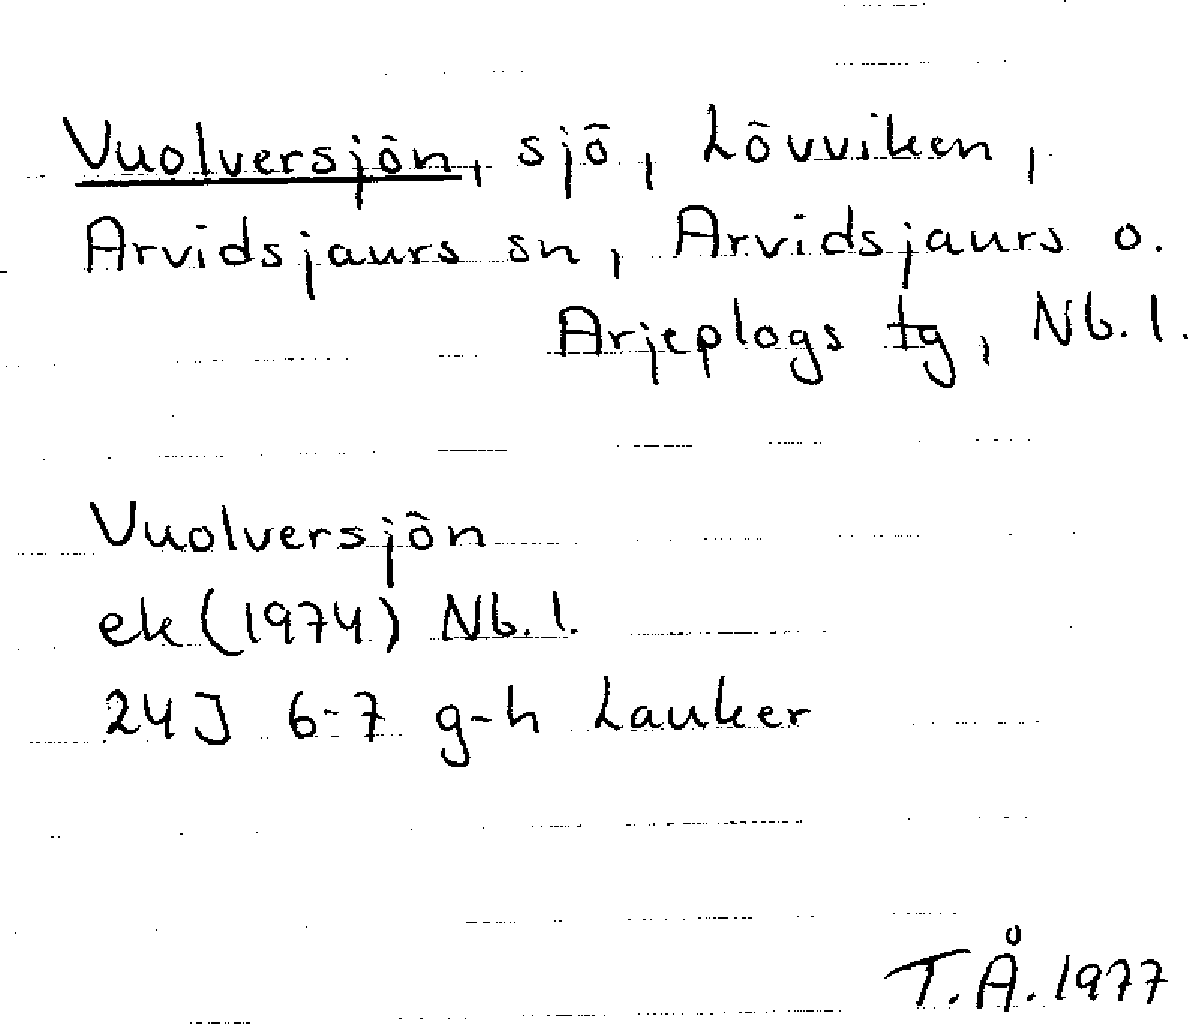 Vuolversjön, sjö, Lövviken,
Arvidsjaurs sn, Arvidsjaurs o.
Arjeplogs tg, Nb. l.
Vuolversjön
ek (1974) Nb. l.
24J 6-7 g-h Lauker
T.Å. 1977